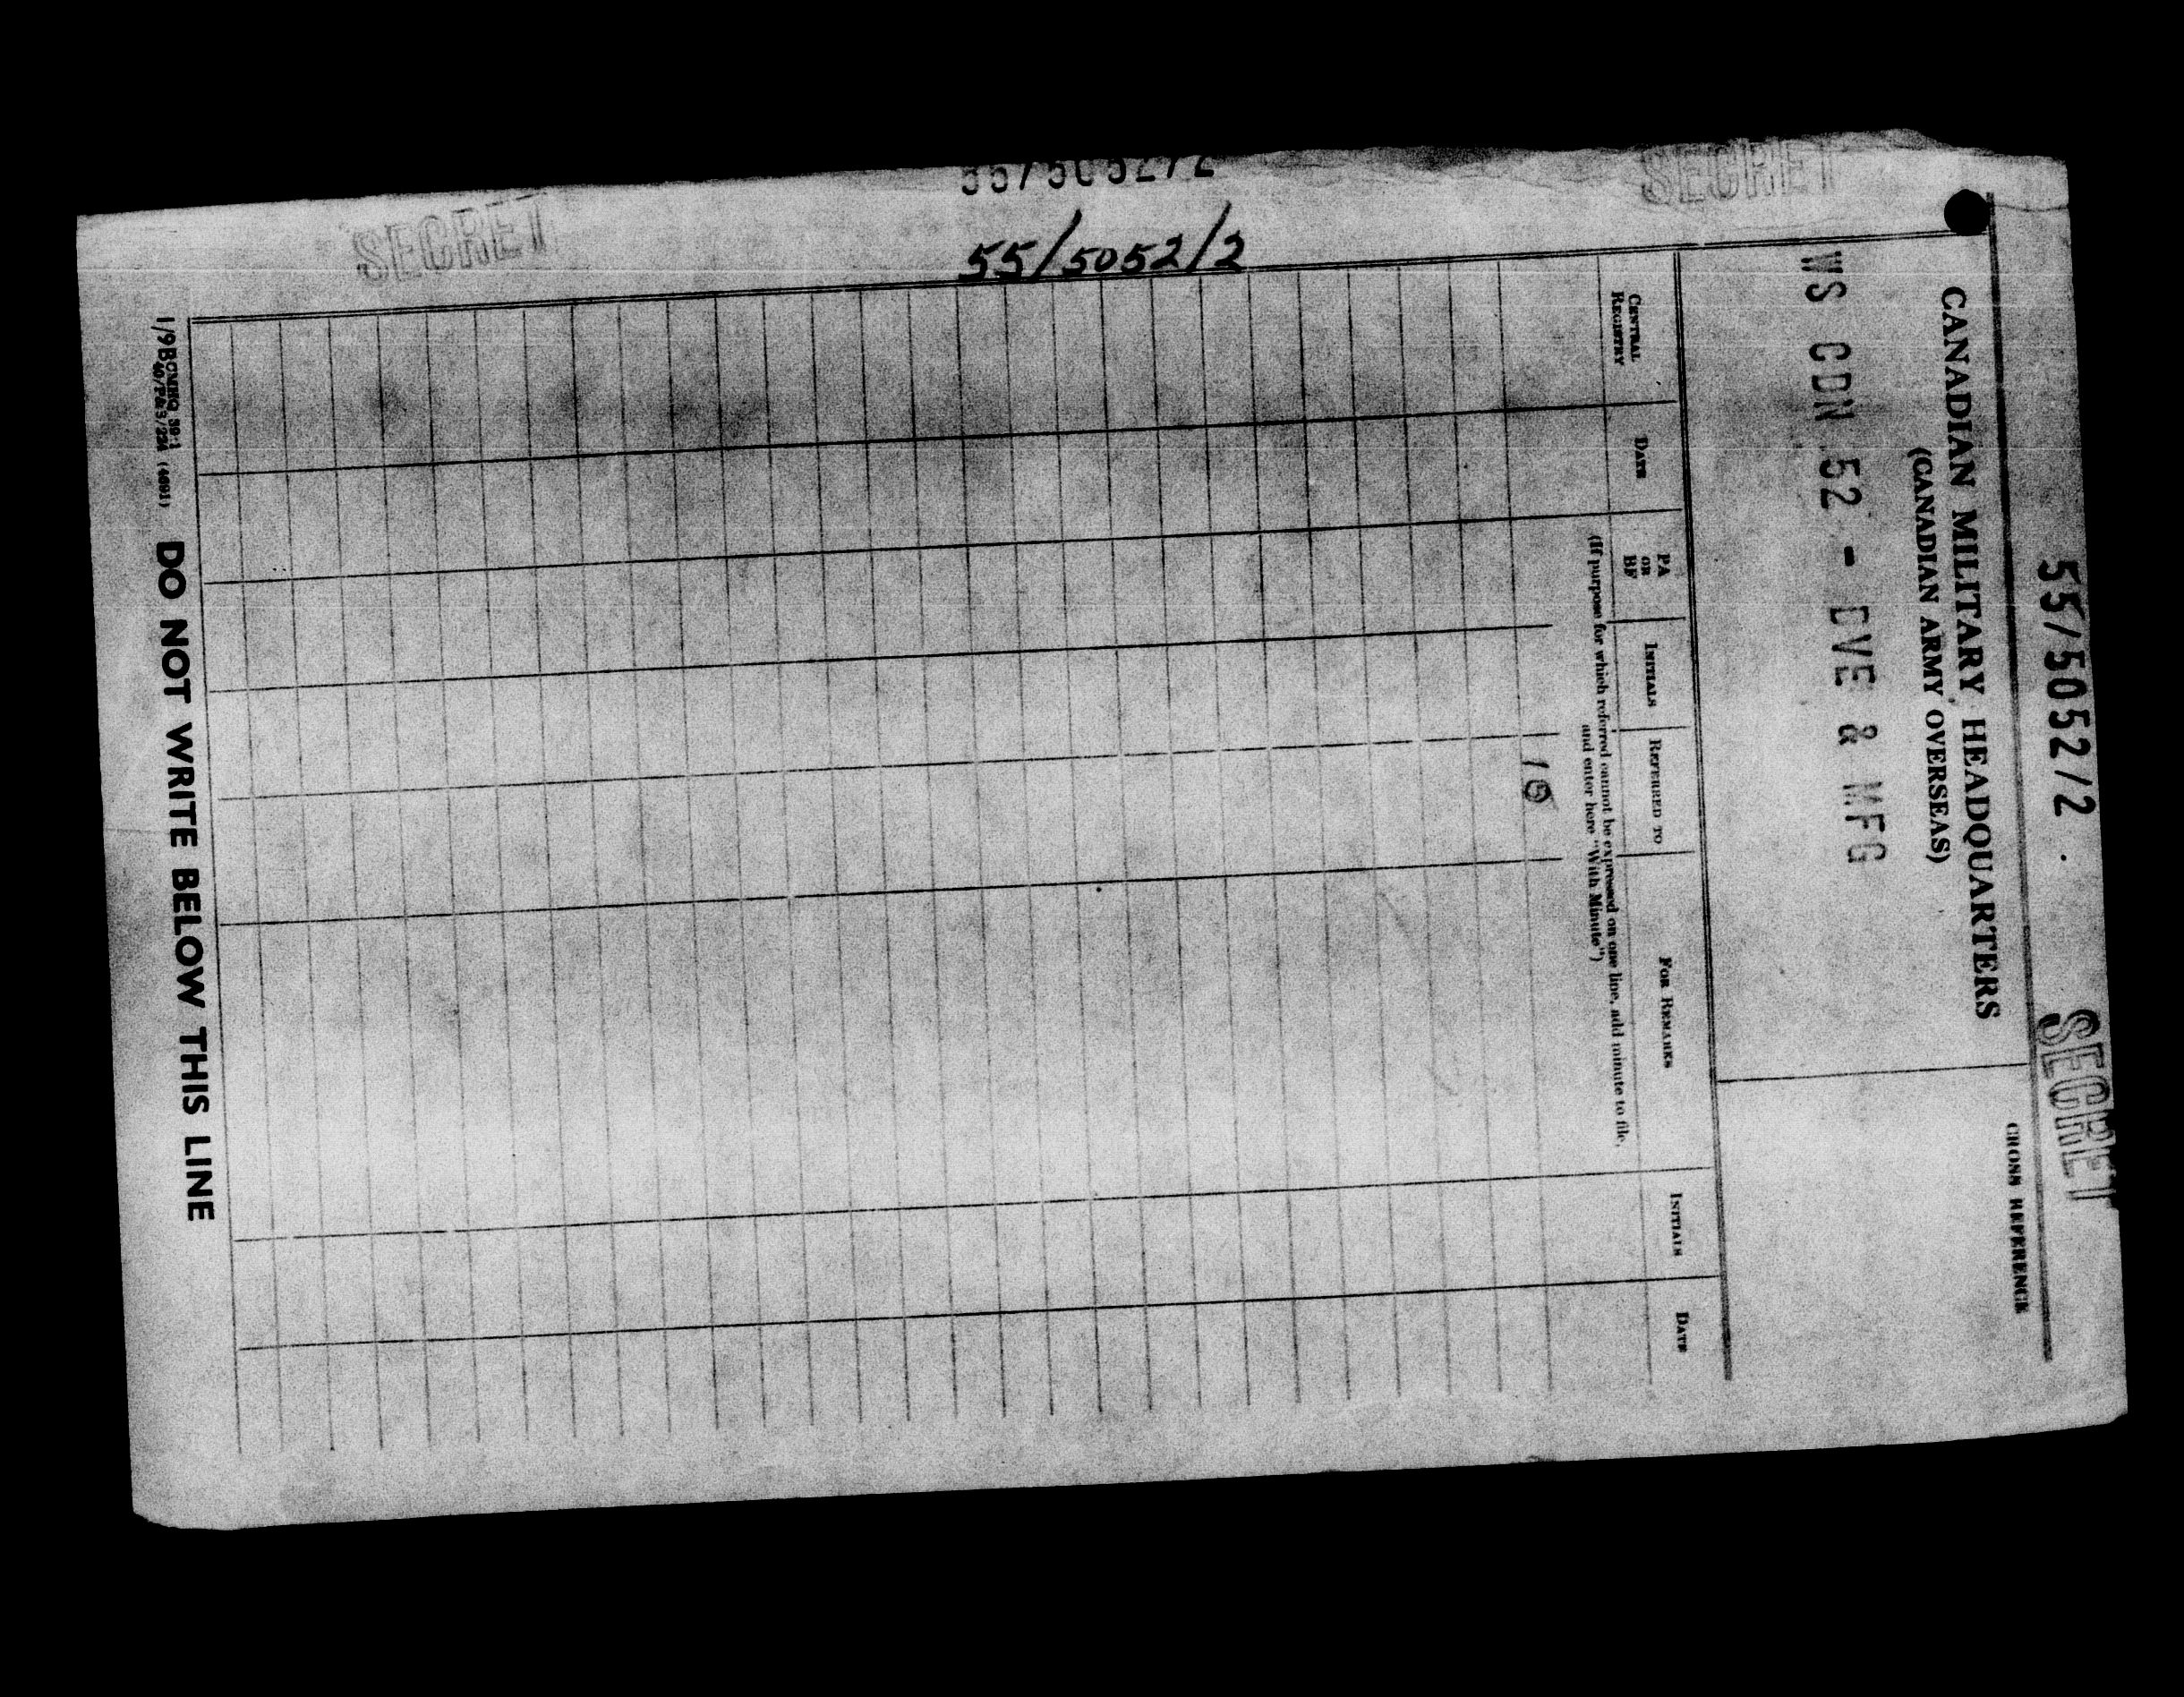 55/5052/2
SECRET
CANADIAN MILITARY HEADQUARTERS
(CANADIAN ARMY OVERSEAS)
CROSS REFERENCE
WS CDN 52 - DVE & MFG
CENTRAL REGISTRY
DATE
PA OR BF
INITIALS
REFERRED TO
FOR REMARKS
INITIALS
DATE
(If purpose for which referred cannot be expressed on one line, add minute to file,
and enter here "With Minute")
DO NOT WRITE BELOW THIS LINE
SECRET
55/5052/2
55/5052/2
SECRET